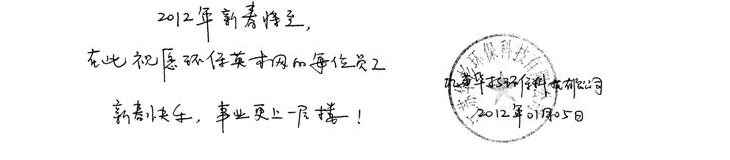 2012年新春将至,
在此祝愿环保英才网的每位员工
新春快乐,事业更上一层楼!
环保科技有限公司
环保科技有限公司
2012年01月05日